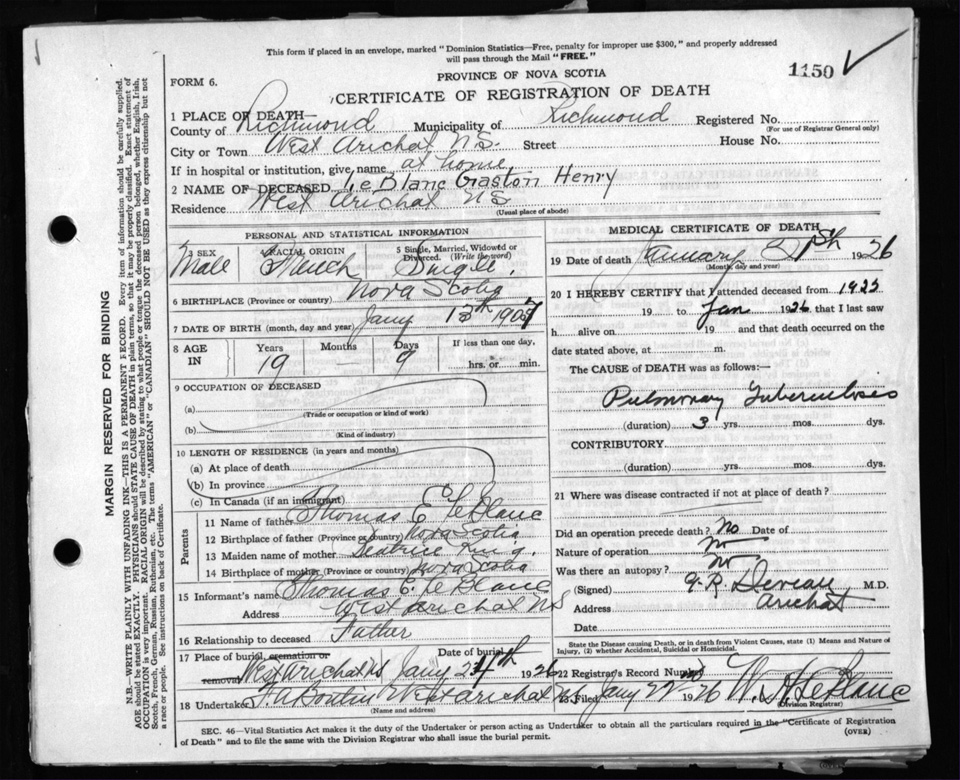 This form if placed in an envelope, marked "Dominion Statistics—Free, penalty for improper use $300," and properly addressed
will pass through the Mail "FREE."
1150 ✓
PROVINCE OF NOVA SCOTIA
FORM 6.
CERTIFICATE OF REGISTRATION OF DEATH
1 PLACE OF DEATH—
County of Richmond Municipality of Richmond Registered No.
(For use of Registrar General only)
City or Town West Arichat N.S. Street House No.
If in hospital or institution, give name at home
2 NAME OF DECEASED Le Blanc Gaston Henry
Residence West Arichat NS
(Usual place of abode)
PERSONAL AND STATISTICAL INFORMATION
SEX Male
RACIAL ORIGIN French
5 Single, Married, Widowed or Divorced. (Write the word) Single
6 BIRTHPLACE (Province or country) Nova Scotia
7 DATE OF BIRTH (month, day and year) Jany 13th 1907
8 AGE IN
Years Months Days If less than one day,
19 — 9 hrs. or min.
9 OCCUPATION OF DECEASED
(a)
(Trade or occupation or kind of work)
(b)
(Kind of industry)
10 LENGTH OF RESIDENCE (in years and months)
(a) At place of death
(b) In province
(c) In Canada (if an immigrant)
Parents
11 Name of father Thomas E. LeBlanc
12 Birthplace of father (Province or country) Nova Scotia
13 Maiden name of mother Beatrice
14 Birthplace of mother (Province or country) Nova Scotia
15 Informant's name Thomas E. Le Blanc
Address West Arichat NS
16 Relationship to deceased Father
17 Place of burial, cremation or removal West Arichat NS
Date of burial Jany 24th 1926
18 Undertaker F. A Boutin West arichat
(Name and address)
MEDICAL CERTIFICATE OF DEATH
19 Date of death January 21st 1926
(Month, day and year)
20 I HEREBY CERTIFY that I attended deceased from 1923
19 to Jan 1926 that I last saw
h alive on 19 and that death occurred on the
date stated above, at m.
The CAUSE of DEATH was as follows:—
Pulmonary Tuberculosis
(duration) 3 yrs. mos. dys.
CONTRIBUTORY
(duration) yrs. mos. dys.
21 Where was disease contracted if not at place of death?
Did an operation precede death? No Date of
Nature of operation
Was there an autopsy? no
(Signed) M.D.
Address Arichat
Date
State the Disease causing Death, or in death from Violent Causes, state (1) Means and Nature of
Injury, (2) whether Accidental, Suicidal or Homicidal.
22 Registrar's Record Number
23 Filed Jany 22 1926 LeBlanc
(Division Registrar)
SEC. 46—Vital Statistics Act makes it the duty of the Undertaker or Person acting as Undertaker to obtain all the particulars required in the "Certificate of Registration
of Death" and to file the same with the Division Registrar who shall issue the burial permit. (OVER)
MARGIN RESERVED FOR BINDING
N.B.—WRITE PLAINLY WITH UNFADING INK—THIS IS A PERMANENT RECORD. Every item of information should be carefully supplied.
AGE should be stated EXACTLY. PHYSICIANS should STATE CAUSE OF DEATH in plain terms, so that it may be properly classified. Exact statement of
OCCUPATION is very important. RACIAL ORIGIN will be described by stating to what people or tongue the deceased person belonged, whether English, Irish,
Scotch, French, German, Russian, Ruthenian, etc. The terms "AMERICAN" or "CANADIAN" SHOULD NOT BE USED as they express citizenship but not
a race or people. See instructions on back of Certificate.